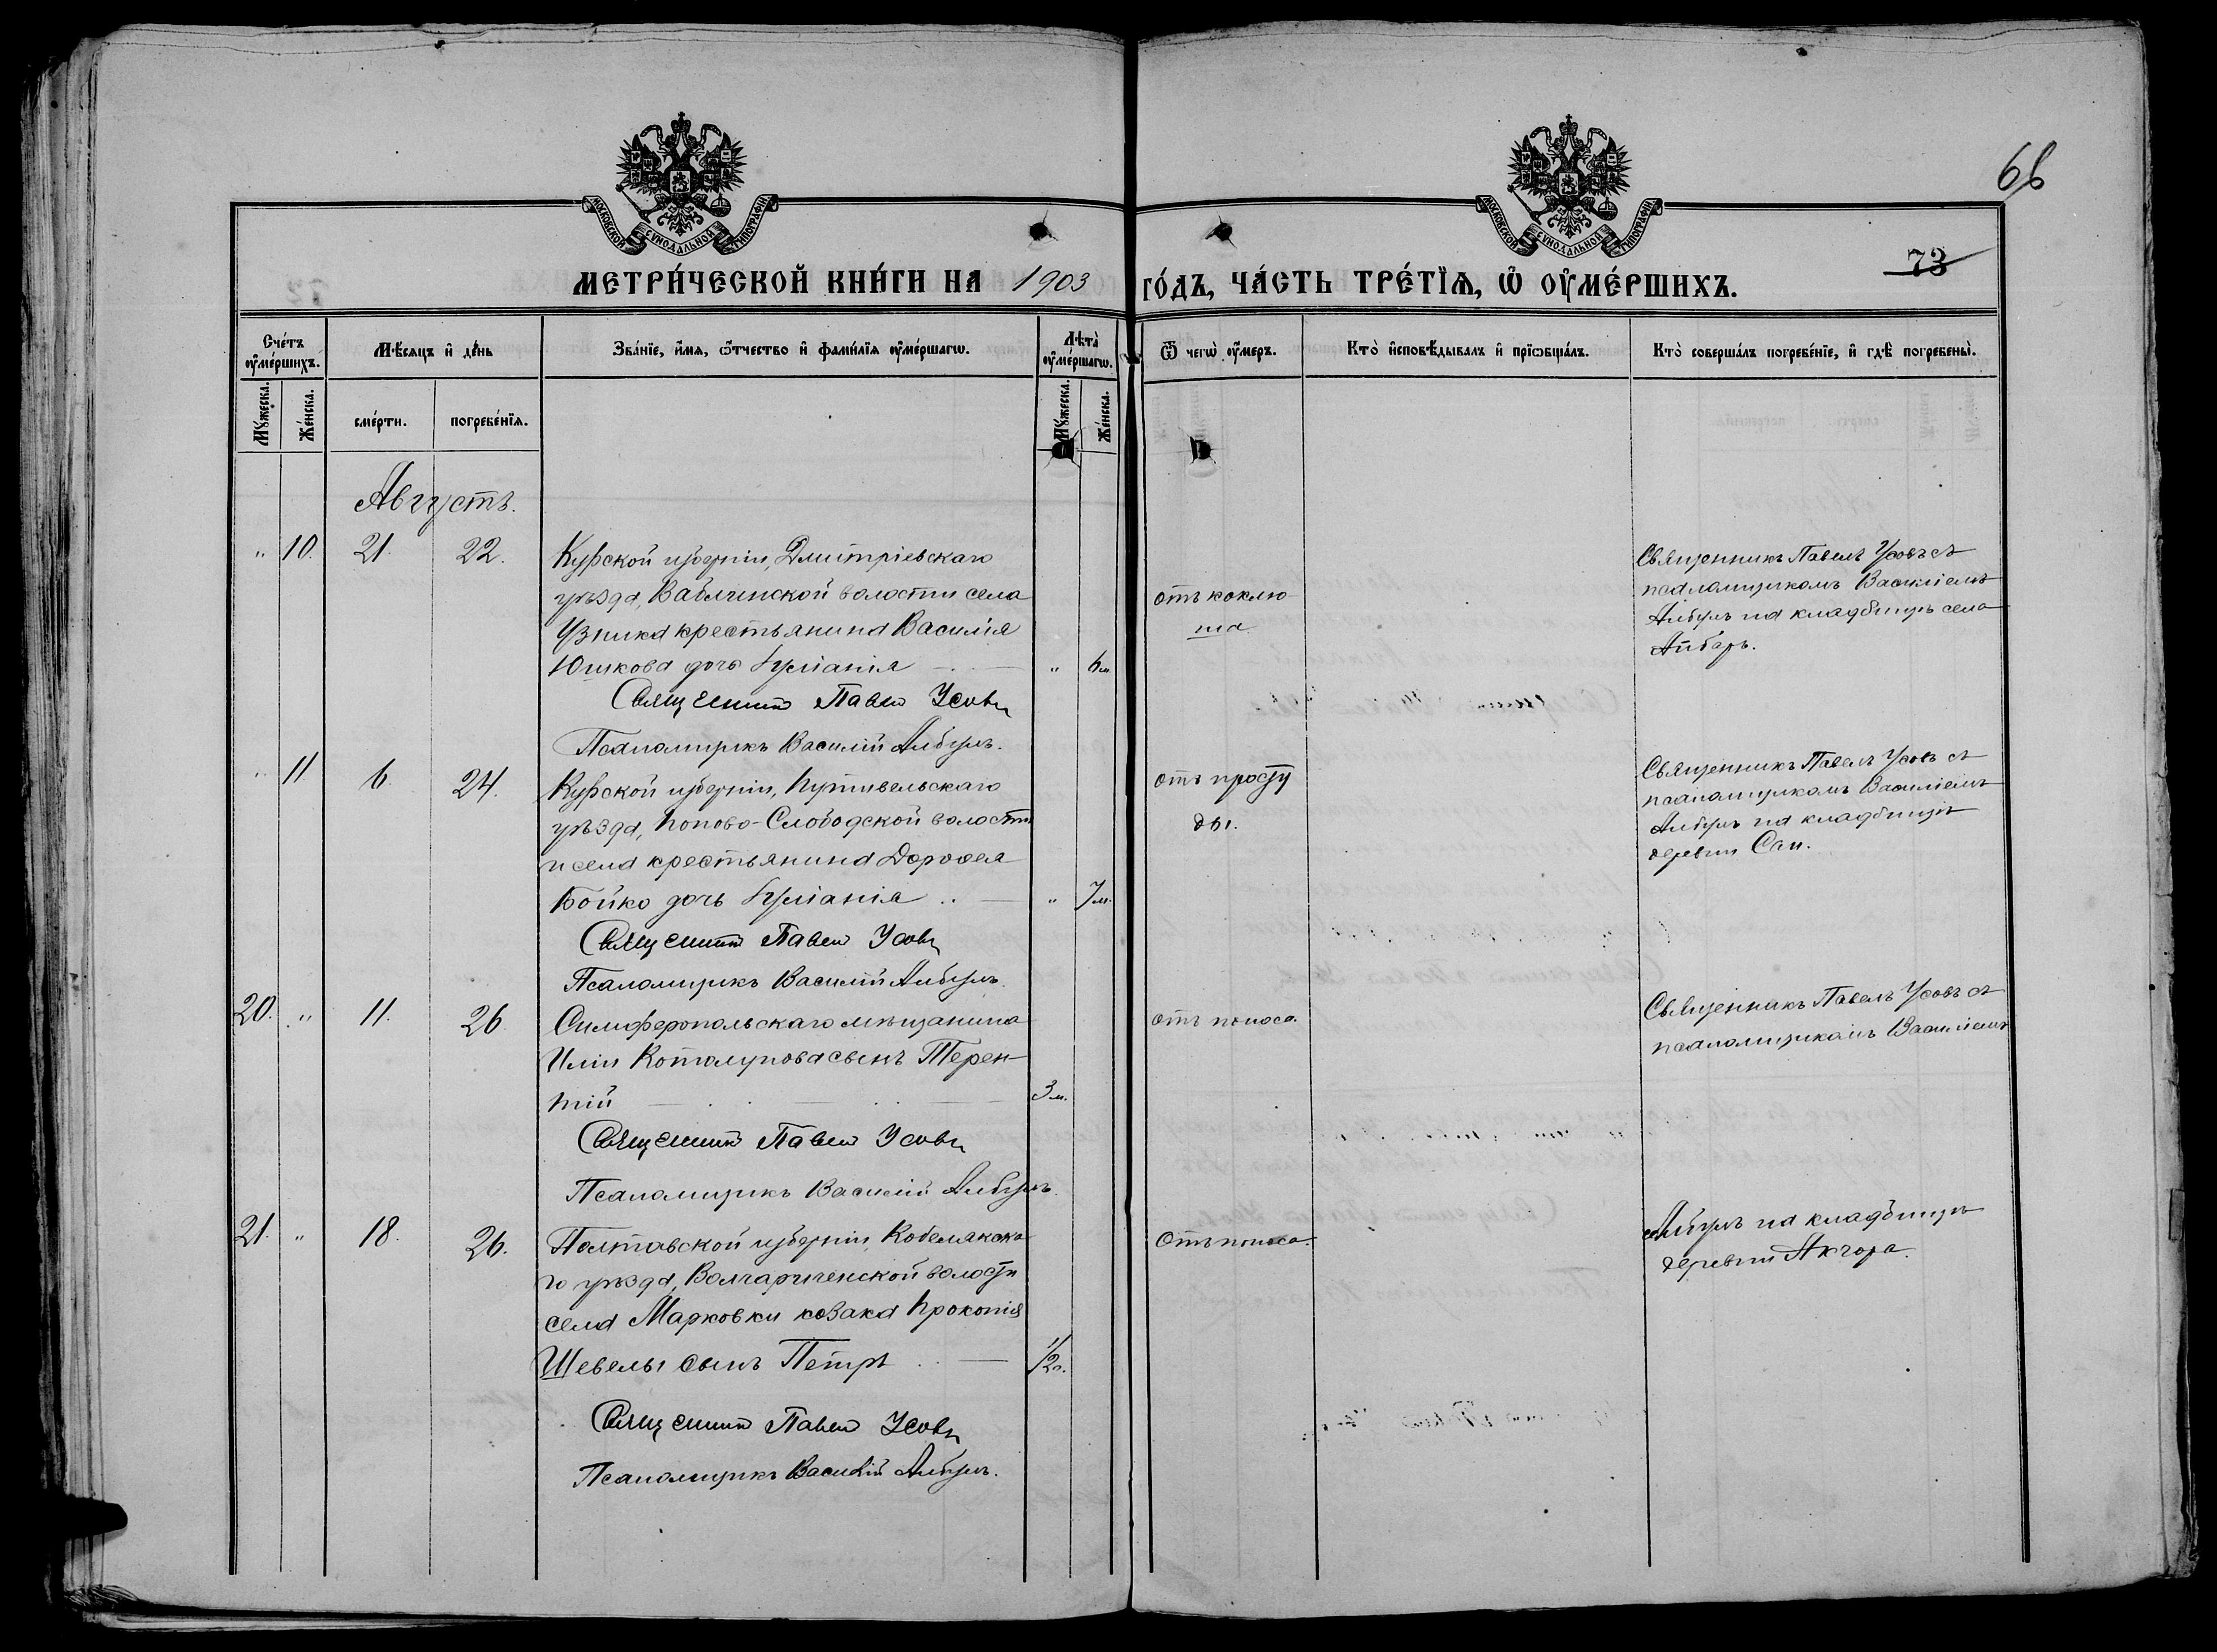 МОСКОВСКОЙ СѴНОДАЛЬНОЙ ТИПОГРАФІИ
МОСКОВСКОЙ СѴНОДАЛЬНОЙ ТИПОГРАФІИ
66
73
МЕТРИ́ЧЕСКОЙ КНИ́ГИ НА 1903 ГО́ДЪ, ЧА́СТЬ ТРЕ́ТЇѦ, Ѡ҆ ОУ҆МЕ́РШИХЪ.
Сче́тъ оу҆ме́ршихъ.
Мѣ́сяцъ и҆ де́нь
Зва́нїе, и҆́мя, ѻ҆́тчество и҆ фами́лїя оу҆ме́ршагѡ.
Лѣ́та̀ оу҆ме́ршагѡ.
Ѿ чегѡ̀ оу҆́меръ.
Кто̀ и҆сповѣ́дывалъ и҆ прїѡбща́лъ.
Кто̀ соверша́лъ погребе́нїе, и҆ гдѣ̀ погребены̀.
Мꙋ́жеска.
Же́нска.
сме́рти.
погребе́нїя.
Мꙋ́жеска.
Же́нска.
Августъ.
" 10. 21. 22.
Курской губерніи, Дмитріевскаго
уѣзда, Ваблинской волости села
Узника крестьянина Василія
Юшкова дочь Іуліанія " 6 м.
Священникъ Павелъ Усовъ
Псаломщикъ Василій Албулъ.
отъ коклю-
ша
Священникъ Павелъ Усовъ съ
псаломщикомъ Василіемъ
Албулъ на кладбищѣ села
Айбаръ.
" 11 6. 24.
Курской губерніи, Путивельскаго
уѣзда, Попово-Слободской волости
и села крестьянина Дорофея
Бойко дочь Іуліанія " 7 м.
Священникъ Павелъ Усовъ
Псаломщикъ Василій Албулъ.
отъ просту
ды.
Священникъ Павелъ Усовъ съ
псаломщикомъ Василіемъ
Албулъ на кладбищѣ
деревни Сап.
20. " 11. 26
Симферопольскаго мѣщанина
Иліи Котолупова сынъ Терен-
тій 3 м.
Священникъ Павелъ Усовъ
Псаломщикъ Василій Албулъ.
отъ поноса.
Священникъ Павелъ Усовъ съ
псаломщикомъ Василіемъ
21. " 18. 26.
Полтавской губерніи, Кобелякска-
го уѣзда, волости
села Марковки козака Прокопія
Шевелы сынъ Петръ 1/2 г.
Священникъ Павелъ Усовъ
Псаломщикъ Василій Албулъ.
Отъ поноса.
Албулъ на кладбищѣ
деревни Акчора.